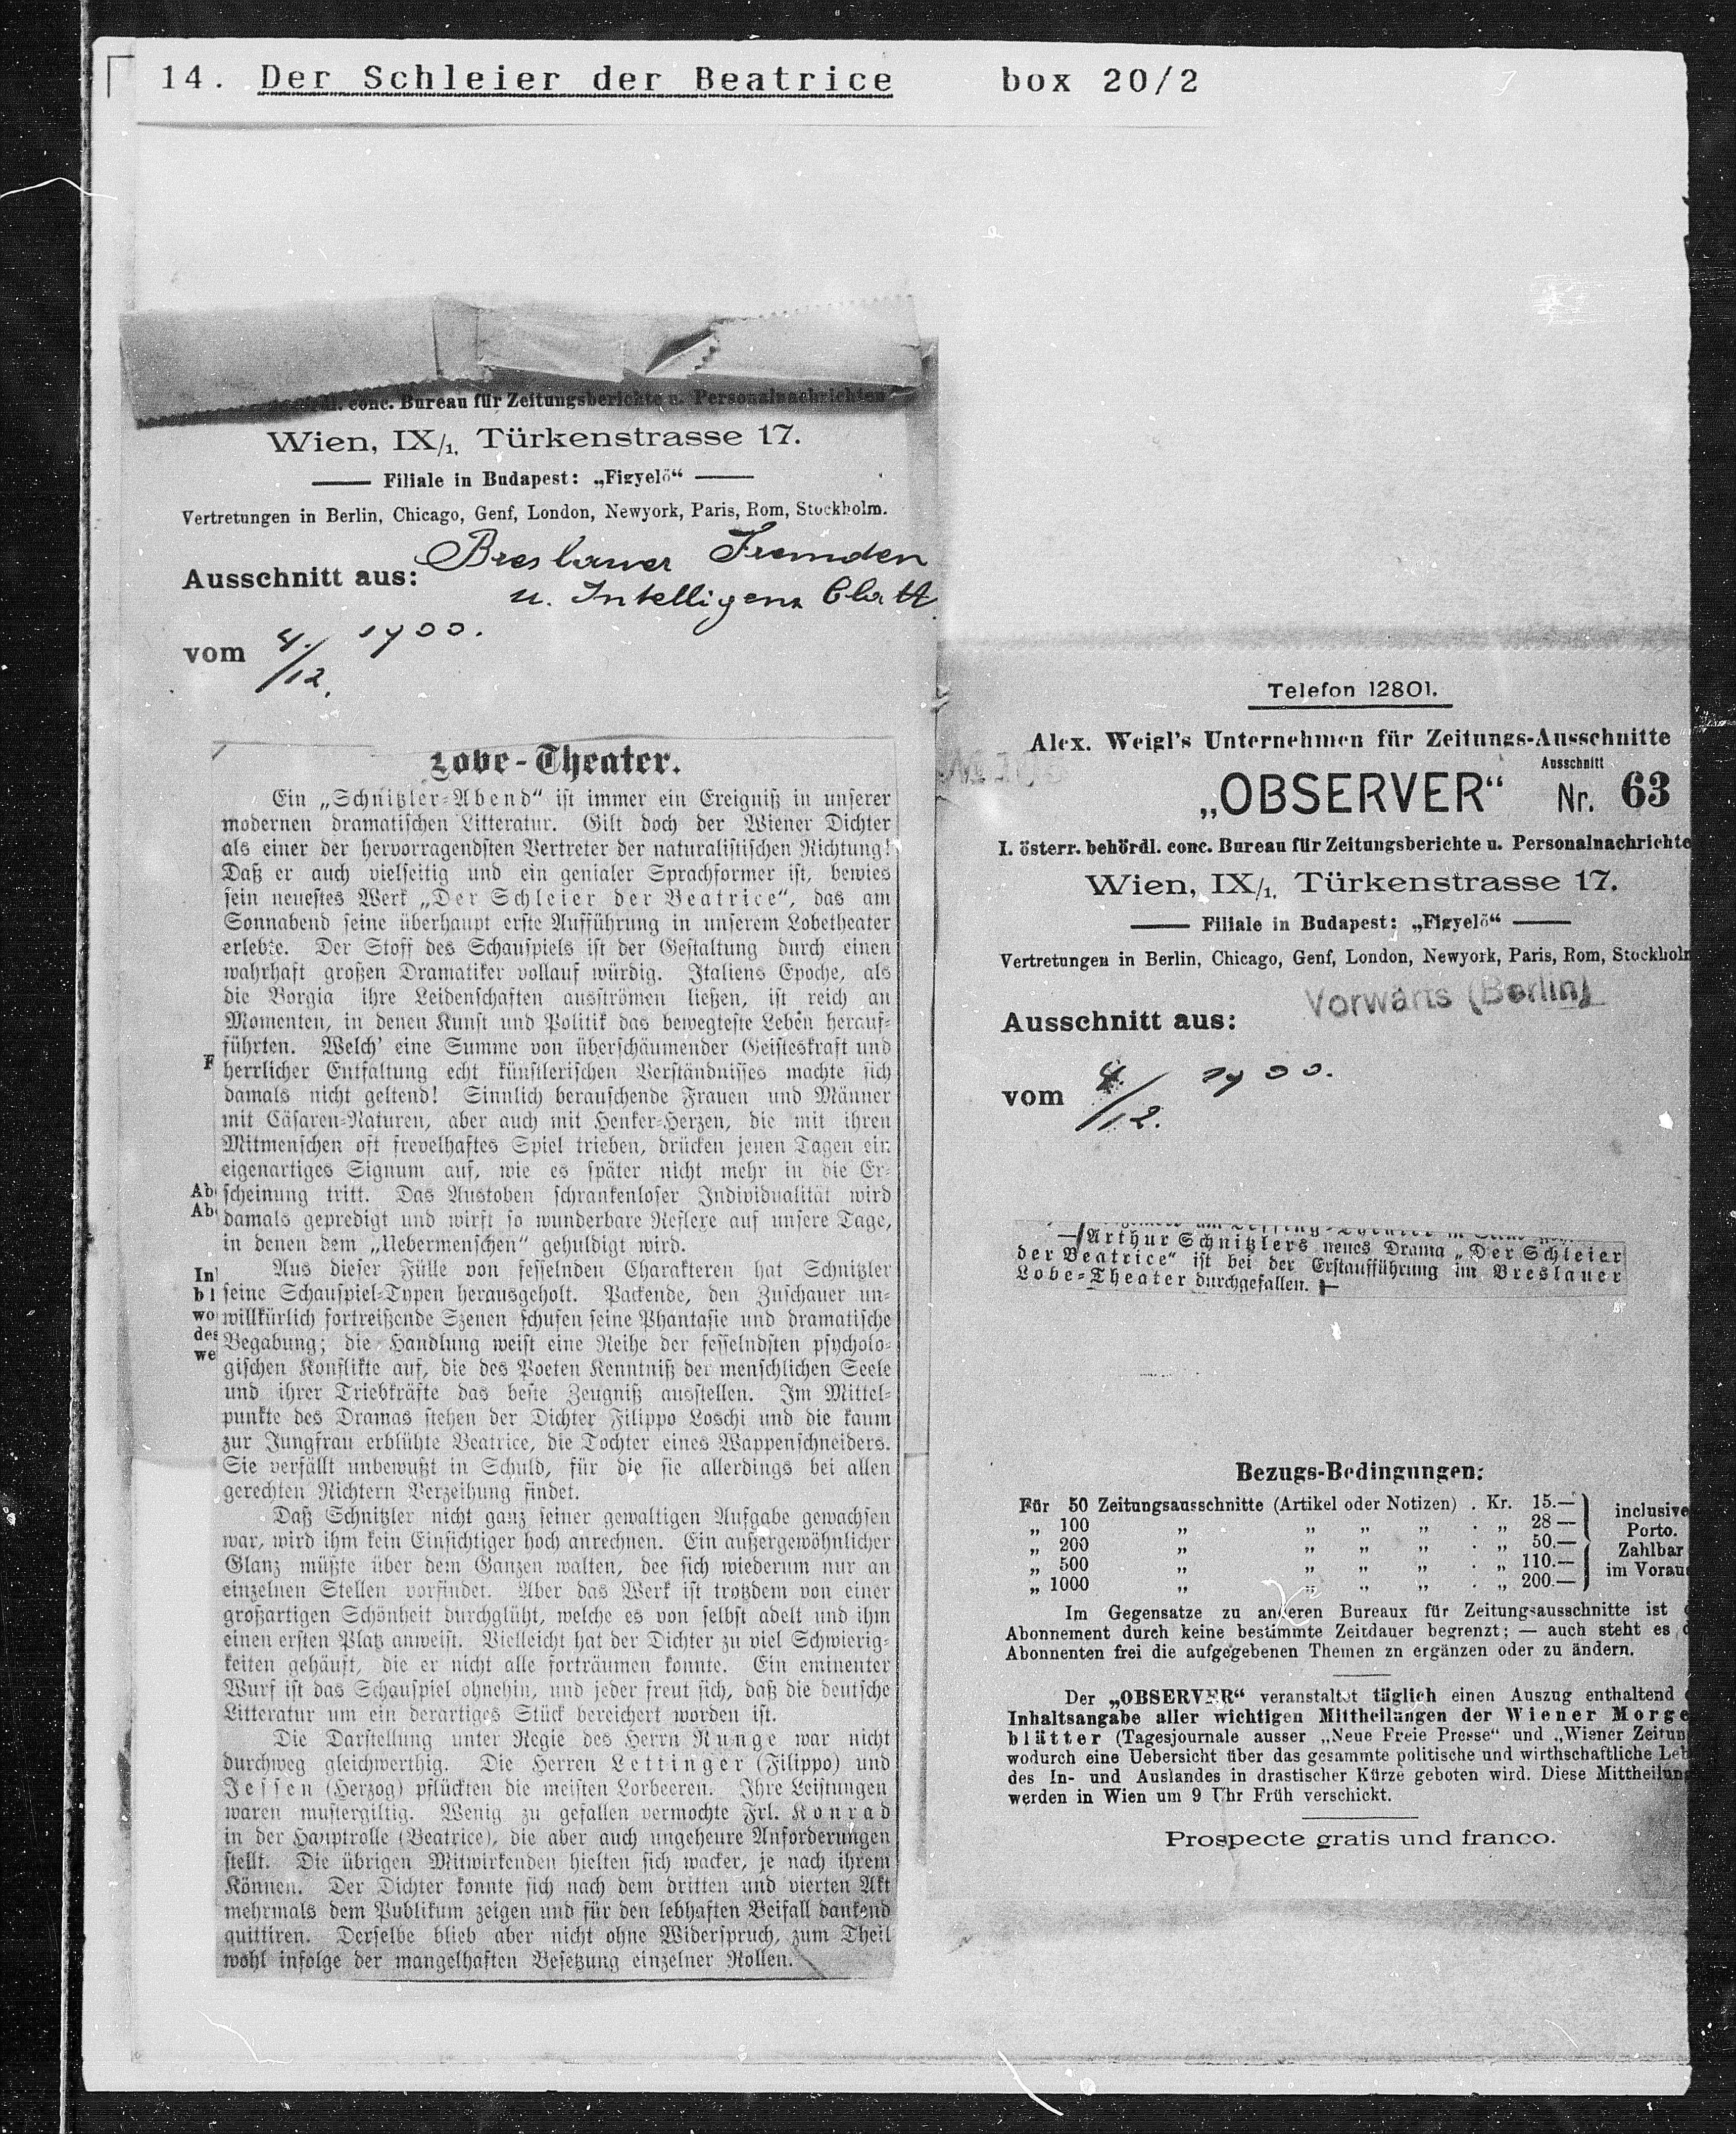 14. Der Schleier der Beatrice box 20/2
conc. Bureau für Zeitungsberichte u. Personalnachrichten
Wien, IX/1, Türkenstrasse 17.
Filiale in Budapest: „Figyelő“
Vertretungen in Berlin, Chicago, Genf, London, Newyork, Paris, Rom, Stockholm.
Ausschnitt aus: Breslauer Fremden
u. Intelligenz Blatt
vom 4./12. 1900.
Lobe-Theater.
Ein „Schnitzler-Abend“ ist immer ein Ereigniß in unserer
modernen dramatischen Litteratur. Gilt doch der Wiener Dichter
als einer der hervorragendsten Vertreter der naturalistischen Richtung!
Daß er auch vielseitig und ein genialer Sprachformer ist, bewies
sein neuestes Werk „Der Schleier der Beatrice“, das am
Sonnabend seine überhaupt erste Aufführung in unserem Lobetheater
erlebte. Der Stoff des Schauspiels ist der Gestaltung durch einen
wahrhaft großen Dramatiker vollauf würdig. Italiens Epoche, als
die Borgia ihre Leidenschaften ausströmen ließen, ist reich an
Momenten, in denen Kunst und Politik das bewegteste Leben herauf-
führten. Welch' eine Summe von überschäumender Geisteskraft und
herrlicher Entfaltung echt künstlerischen Verständnisses machte sich
damals nicht geltend! Sinnlich berauschende Frauen und Männer
mit Cäsaren-Naturen, aber auch mit Henker-Herzen, die mit ihren
Mitmenschen oft frevelhaftes Spiel trieben, drücken jenen Tagen ein
eigenartiges Signum auf, wie es später nicht mehr in die Er-
scheinung tritt. Das Austoben schrankenloser Individualität wird
damals gepredigt und wirft so wunderbare Reflexe auf unsere Tage,
in denen dem „Uebermenschen“ gehuldigt wird.
Aus dieser Fülle von fesselnden Charakteren hat Schnitzler
seine Schauspiel-Typen herausgeholt. Packende, den Zuschauer un-
willkürlich fortreißende Szenen schufen seine Phantasie und dramatische
Begabung; die Handlung weist eine Reihe der fesselndsten psycholo-
gischen Konflikte auf, die des Poeten Kenntniß der menschlichen Seele
und ihrer Triebkräfte das beste Zeugniß ausstellen. Im Mittel-
punkte des Dramas stehen der Dichter Filippo Loschi und die kaum
zur Jungfrau erblühte Beatrice, die Tochter eines Wappenschneiders.
Sie verfällt unbewußt in Schuld, für die sie allerdings bei allen
gerechten Richtern Verzeihung findet.
Daß Schnitzler nicht ganz seiner gewaltigen Aufgabe gewachsen
war, wird ihm kein Einsichtiger hoch anrechnen. Ein außergewöhnlicher
Glanz müßte über dem Ganzen walten, dee sich wiederum nur an
einzelnen Stellen vorfindet. Aber das Werk ist trotzdem von einer
großartigen Schönheit durchglüht, welche es von selbst adelt und ihm
einen ersten Platz anweist. Vielleicht hat der Dichter zu viel Schwierig-
keiten gehäuft, die er nicht alle forträumen konnte. Ein eminenter
Wurf ist das Schauspiel ohnehin, und jeder freut sich, daß die deutsche
Litteratur um ein derartiges Stück bereichert worden ist.
Die Darstellung unter Regie des Herrn Runge war nicht
durchweg gleichwerthig. Die Herren Lettinger (Filippo) und
Jessen (Herzog) pflückten die meisten Lorbeeren. Ihre Leistungen
waren mustergiltig. Wenig zu gefallen vermochte Frl. Konrad
in der Hauptrolle (Beatrice), die aber auch ungeheure Anforderungen
stellt. Die übrigen Mitwirkenden hielten sich wacker, je nach ihrem
Können. Der Dichter konnte sich nach dem dritten und vierten Akt
mehrmals dem Publikum zeigen und für den lebhaften Beifall dankend
quittiren. Derselbe blieb aber nicht ohne Widerspruch, zum Theil
wohl infolge der mangelhaften Besetzung einzelner Rollen.
F
Ab
Ab
In
bl
wo
des
we
Telefon 12801.
Alex. Weigl's Unternehmen für Zeitungs-Ausschnitte
„OBSERVER“ Ausschnitt Nr. 63
I. österr. behördl. conc. Bureau für Zeitungsberichte u. Personalnachrichte
Wien, IX/1, Türkenstrasse 17.
Filiale in Budapest: „Figyelő“
Vertretungen in Berlin, Chicago, Genf, London, Newyork, Paris, Rom, Stockholm
Vorwärts (Berlin)
Ausschnitt aus:
vom 4/12. 1900.
— Arthur Schnitzlers neues Drama „Der Schleier
der Beatrice“ ist bei der Erstaufführung im Breslauer
Lobe-Theater durchgefallen. —
Bezugs-Bedingungen:
Für 50 Zeitungsausschnitte (Artikel oder Notizen) . Kr. 15.— inclusive
„ 100 „ „ „ „ . „ 28 — Porto.
„ 200 „ „ „ „ . „ 50.— Zahlbar
„ 500 „ „ „ „ . „ 110.— im Vorau
„ 1000 „ „ „ „ . „ 200.—
Im Gegensatze zu anderen Bureaux für Zeitungsausschnitte ist
Abonnement durch keine bestimmte Zeitdauer begrenzt; — auch steht es
Abonnenten frei die aufgegebenen Themen zn ergänzen oder zu ändern.
Der „OBSERVER“ veranstaltet täglich einen Auszug enthaltend
Inhaltsangabe aller wichtigen Mittheilungen der Wiener Morge
blätter (Tagesjournale ausser „Neue Freie Presse“ und „Wiener Zeitun
wodurch eine Uebersicht über das gesammte politische und wirthschaftliche Leb
des In- und Auslandes in drastischer Kürze geboten wird. Diese Mittheilun
werden in Wien um 9 Uhr Früh verschickt.
Prospecte gratis und franco.